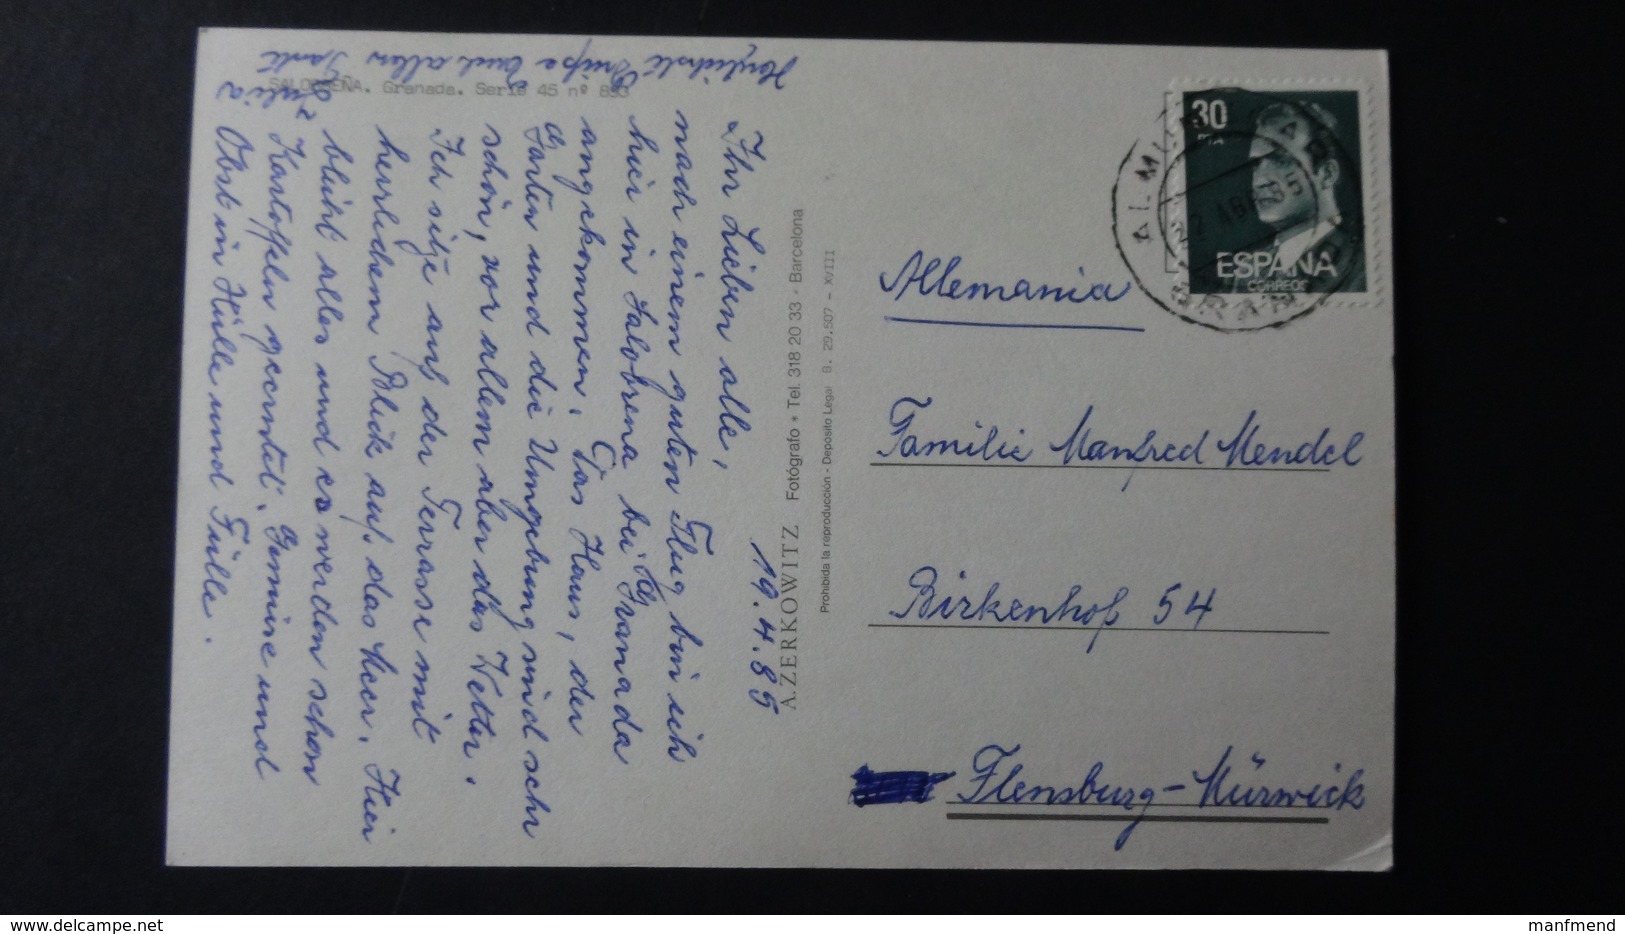 SALOBREÑA. Granada. Serie 45 nº 893
19.4.85
Ihr Lieben alle,
nach einem guten Flug bin ich
hier in Salobrena bei Granada
angekommen. Das Haus, der
Garten und die Umgebung sind sehr
schön, vor allem aber das Wetter.
Ich sitze auf der Terrasse mit
herrlichem Blick auf das Meer. Hier
blüht alles und es werden schon
Kartoffeln geerntet. Gemüse und
Obst in Hülle und Fülle.
Herzlichste Grüße Euch allen
Tante
Julia
A. ZERKOWITZ Fotógrafo • Tel. 318 20 33 - Barcelona
Prohibida la reproducción - Deposito Legal B. 29.507 - XVIII
30
PTA
ESPAÑA
CORREOS
GRANADA
Allemania
Familie Manfred Mendel
Birkenhof 54
Flensburg-Mürwick
manfmend